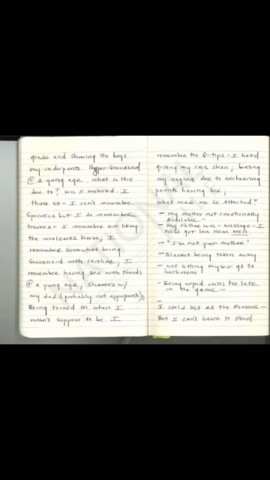 grade and showing the boys
my underpants. Hyper-sexualized
@ a young age. What is this
due to? Was I molested. I
think so - I can't remember
specifics but I do remember
trauma - I remember not liking
the house, I
remember somewhat being
sexualized with Caroline, I
remember having sex with friends
@ a young age, showers w/
my dad (probably not appropriate),
Being turned on when I
wasn't suppose to be. I
remember the - I hated
my due to
parents having sex,
what made me so attached?
- my mother not emotionally
available.
- my father was - message - I
love from men
- "I'm not your mother"
- Blanket being taken away
- not letting my go to
bathroom
- Being wiped until too late
in "the game" -
-
I could list all the reasons -
But I can't seem to